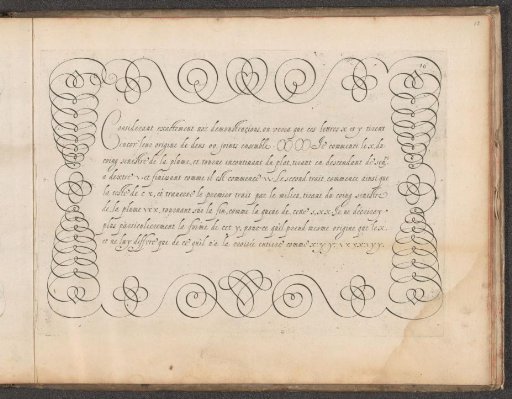 16
Considerant exactement nos demonstracions, on verra que ces lettres x et y tirent
encor leur origine de deux oo joints ensemble Je commence le x du
coing senestre de la plume, et tourne incontinant du plat, tirant en descendant de
a dextre et finissant comme il est commencé Le second trait commence ainsi que
la teste de c x, et traverse le premier trait par le milieu, tirant du coing senestre
de la plume x x x, tournant sur la fin, comme la queue de cette x.x.x Je ne descriray
plus particulierement la forme de cet y, pour ce quil prend mesme origine que le x.
et ne luy differe que de ce quil n'a la croisée entiere comme x y y